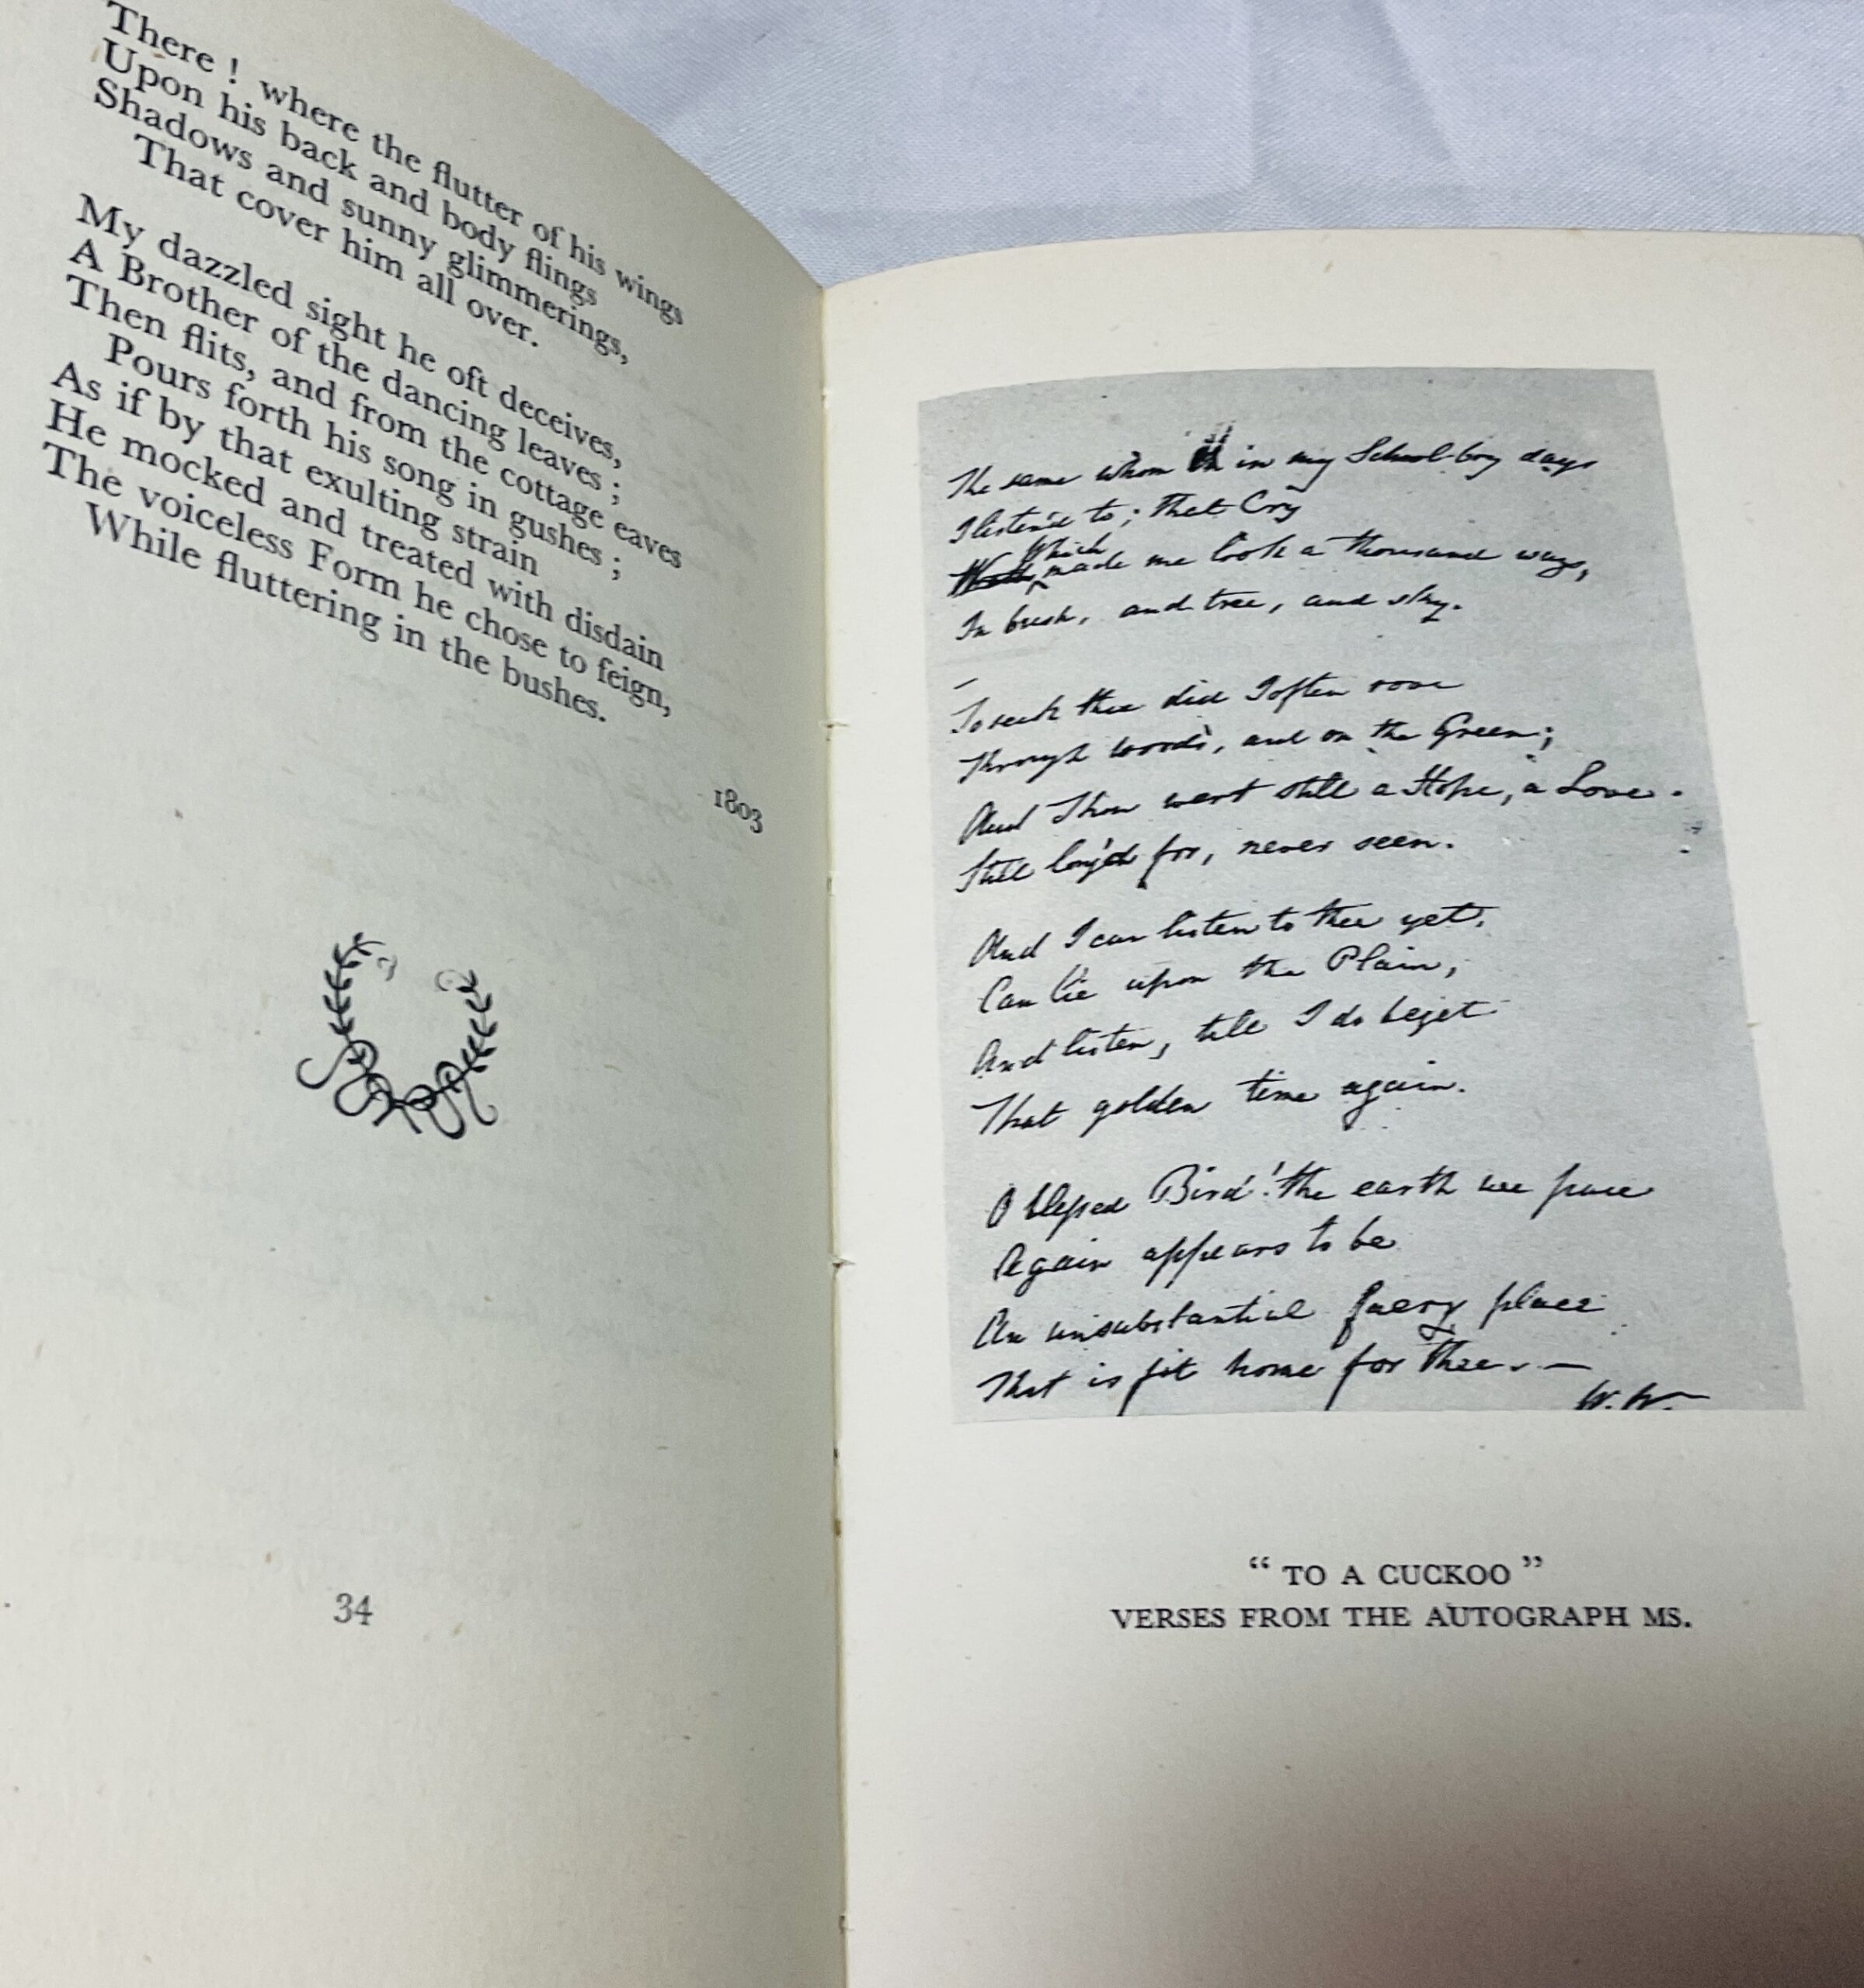 There ! where the flutter of his wings
Upon his back and body flings
Shadows and sunny glimmerings,
That cover him all over.
My dazzled sight he oft deceives,
A Brother of the dancing leaves ;
Then flits, and from the cottage eaves
Pours forth his song in gushes ;
As if by that exulting strain
He mocked and treated with disdain
The voiceless Form he chose to feign,
While fluttering in the bushes.
1803
34
The same whom in my School-boy days
I listen'd to; that Cry
Which
made me look a thousand ways,
In bush, and tree, and sky.
To seek thee did I often rove
Through woods, and on the Green;
And Thou wert still a Hope, a Love.
Still long'd for, never seen.
And I can listen to thee yet,
Can lie upon the Plain,
And listen, till I do beget
That golden time again.
O blessed Bird! the earth we pace
Again appears to be
An unsubstantial faery place
That is fit home for Thee. —
W. W.
“ TO A CUCKOO ”
VERSES FROM THE AUTOGRAPH MS.